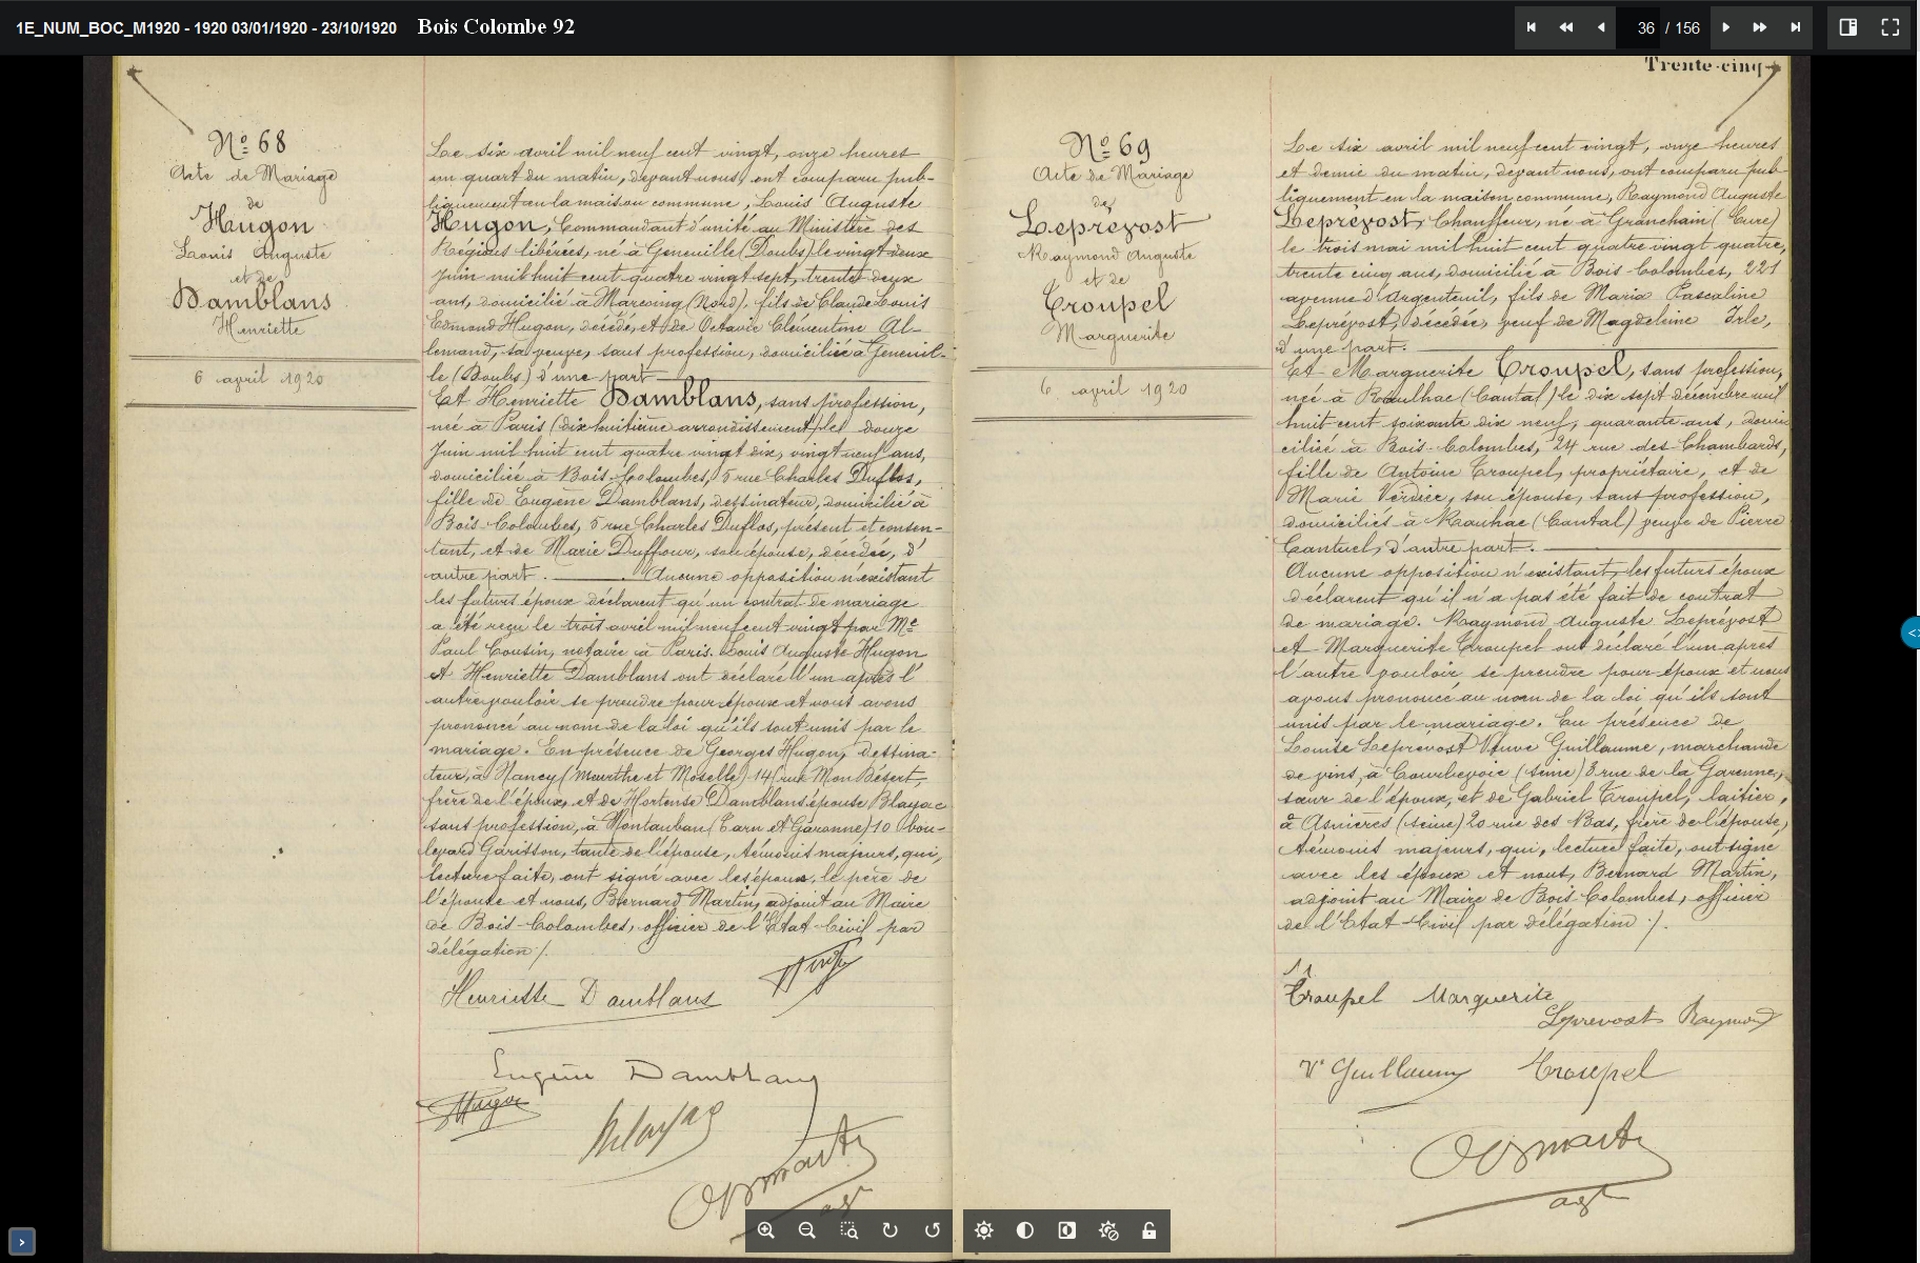 1E_NUM_BOC_M1920 - 1920 03/01/1920 - 23/10/1920 Bois Colombe 92
36 / 156
Nº 68
Acte de Mariage
de
Hugon
Louis Auguste
et de
Damblans
Henriette
6 avril 1920
Le six avril mil neuf cent vingt, onze heures
un quart du matin, devant nous, ont comparu pub-
liquement en la maison commune, Louis Auguste
Hugon, Commandant d'unité au Ministère des
Régions libérées, né à Geneuille (Doubs) le vingt deux
Juin mil huit cent quatre vingt sept, trente deux
ans, domicilié à Marcoing (Nord), fils de Claude Louis
Edmond Hugon, décédé, et de Octavie Clémentine Al-
lemand, sa veuve, sans profession, domiciliée à Geneuil-
le (Doubs) d'une part
Et Henriette Damblans, sans profession,
née à Paris (dix huitième arrondissement) le douze
Juin mil huit cent quatre vingt dix, vingt neuf ans,
domiciliée à Bois-Colombes, 5 rue Charles Duflos,
fille de Eugène Damblans, dessinateur, domicilié à
Bois-Colombes, 5 rue Charles Duflos, présent et consen-
tant, et de Marie Duffour, son épouse, décédée, d'
autre part. Aucune opposition n'existant
les futurs époux déclarent qu'un contrat de mariage
a été reçu le trois avril mil neuf cent vingt par Me
Paul Cousin, notaire à Paris. Louis Auguste Hugon
et Henriette Damblans ont déclaré l'un après l'
autre vouloir se prendre pour époux et nous avons
prononcé au nom de la loi qu'ils sont unis par le
mariage. En présence de Georges Hugon, dessina-
teur, à Nancy (Meurthe et Moselle) 14 rue Mon Désert,
frère de l'époux, et de Hortense Damblans épouse Blayac
sans profession, à Montauban (Tarn et Garonne) 10 bou-
levard Garisson, tante de l'épouse, témoins majeurs, qui,
lecture faite, ont signé avec les époux, le père de
l'épouse et nous, Bernard Martin, adjoint au Maire
de Bois-Colombes, officier de l'Etat-Civil par
délégation /.
Henriette Damblans
Hugon
Eugène Damblans
Hugon
Blayac
Martin
adjt
Trente-cinq
Nº 69
Acte de Mariage
de
Leprévost
Raymond Auguste
et de
Troupel
Marguerite
6 avril 1920
Le six avril mil neuf cent vingt, onze heures
et demie du matin, devant nous, ont comparu pub-
liquement en la maison commune, Raymond Auguste
Leprévost, Chauffeur, né à Granchain (Eure)
le trois mai mil huit cent quatre vingt quatre,
trente cinq ans, domicilié à Bois Colombes, 221
avenue d'Argenteuil, fils de Maria Pascaline
Leprévost, décédée, veuf de Magdeleine Irle,
d'une part.
Et Marguerite Troupel, sans profession,
née à Raulhac (Cantal) le dix sept décembre mil
huit cent soixante dix neuf, quarante ans, domi
ciliée à Bois-Colombes, 24 rue des Chambards,
fille de Antoine Troupel, propriétaire, et de
Marie Verdier, son épouse, sans profession,
domiciliés à Raulhac (Cantal) veuve de Pierre
Cantuel, d'autre part.
Aucune opposition n'existant, les futurs époux
déclarent qu'il n'a pas été fait de contrat
de mariage. Raymond Auguste Leprévost
et Marguerite Troupel ont déclaré l'un après
l'autre vouloir se prendre pour époux et nous
avons prononcé au nom de la loi qu'ils sont
unis par le mariage. En présence de
Louise Leprevost Veuve Guillaume, marchande
de vins, à Courbevoie (Seine) 3 rue de la Garenne,
sœur de l'époux, et de Gabriel Troupel, laitier,
à Asnières (Seine) 20 rue des Bas, frère de l'épouse,
témoins majeurs, qui, lecture faite, ont signé
avec les époux et nous, Bernard Martin,
adjoint au Maire de Bois-Colombes, officier
de l'Etat-Civil par délégation /.
Troupel Marguerite
Leprevost Raymond
Ve Guillaume Troupel
Martin
adjt